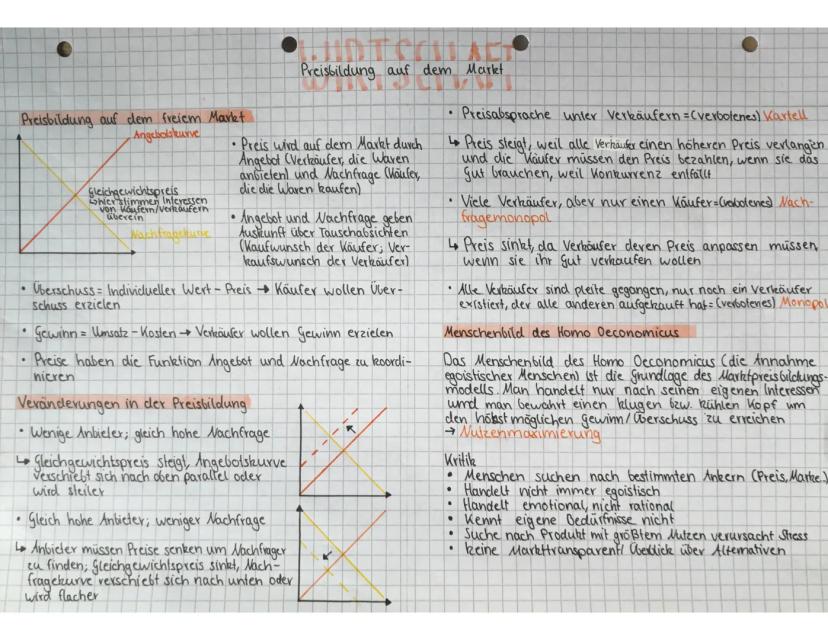 WIRTSCHAFT
Preisbildung auf dem Markt
Preisbildung auf dem freiem Markt
Angebotskurve
Gleichgewichtspreis
↳ hier stimmen Interessen
von Käufern/Verkäufern
überein
Nachfragekurve
• Preis wird auf dem Markt durch
Angebot (Verkäufer, die Waren
anbieten) und Nachfrage (Käufer,
die die Waren kaufen)
• Angebot und Nachfrage geben
Auskunft über Tauschabsichten
(Kaufwunsch der Käufer; Ver-
kaufswunsch der Verkäufer)
• Überschuss = Individueller Wert - Preis → Käufer wollen Über-
schuss erzielen
• Gewinn = Umsatz - Kosten → Verkäufer wollen Gewinn erzielen
• Preise haben die Funktion Angebot und Nachfrage zu koordi-
nieren
Veränderungen in der Preisbildung
• Wenige Anbieter; gleich hohe Nachfrage
↳ Gleichgewichtspreis steigt, Angebotskurve
verschiebt sich nach oben parallel oder
wird steiler
• Gleich hohe Anbieter; weniger Nachfrage
↳ Anbieter müssen Preise senken um Nachfrager
zu finden; Gleichgewichtspreis sinkt, Nach-
fragekurve verschiebt sich nach unten oder
wird flacher
• Preisabsprache unter Verkäufern = (verbotenes) Kartell
↳ Preis steigt, weil alle Verkäufer einen höheren Preis verlangen
und die Käufer müssen den Preis bezahlen, wenn sie das
Gut brauchen, weil Konkurrenz entfällt
• Viele Verkäufer, aber nur einen Käufer = (verbotenes) Nach-
fragemonopol
↳ Preis sinkt, da Verkäufer deren Preis anpassen müssen,
wenn sie ihr Gut verkaufen wollen
• Alle Verkäufer sind pleite gegangen, nur noch ein Verkäufer
existiert, der alle anderen aufgekauft hat = (verbotenes) Monopol
Menschenbild des Homo Oeconomicus
Das Menschenbild des Homo Oeconomicus (die Annahme
egoistischer Menschen) ist die Grundlage des Marktpreisbildungs-
modells. Man handelt nur nach seinen eigenen Interessen
und man bewahrt einen klugen bzw. kühlen Kopf um
den höhst möglichen Gewinn/Überschuss zu erreichen
→ Nutzenmaximierung
Kritik
• Menschen suchen nach bestimmten Ankern (Preis, Marke..)
• Handelt nicht immer egoistisch
• Handelt emotional, nicht rational
• Kennt eigene Bedürfnisse nicht
• Suche nach Produkt mit größtem Nutzen verursacht Stress
• keine Markttransparent/ Überblick über Alternativen